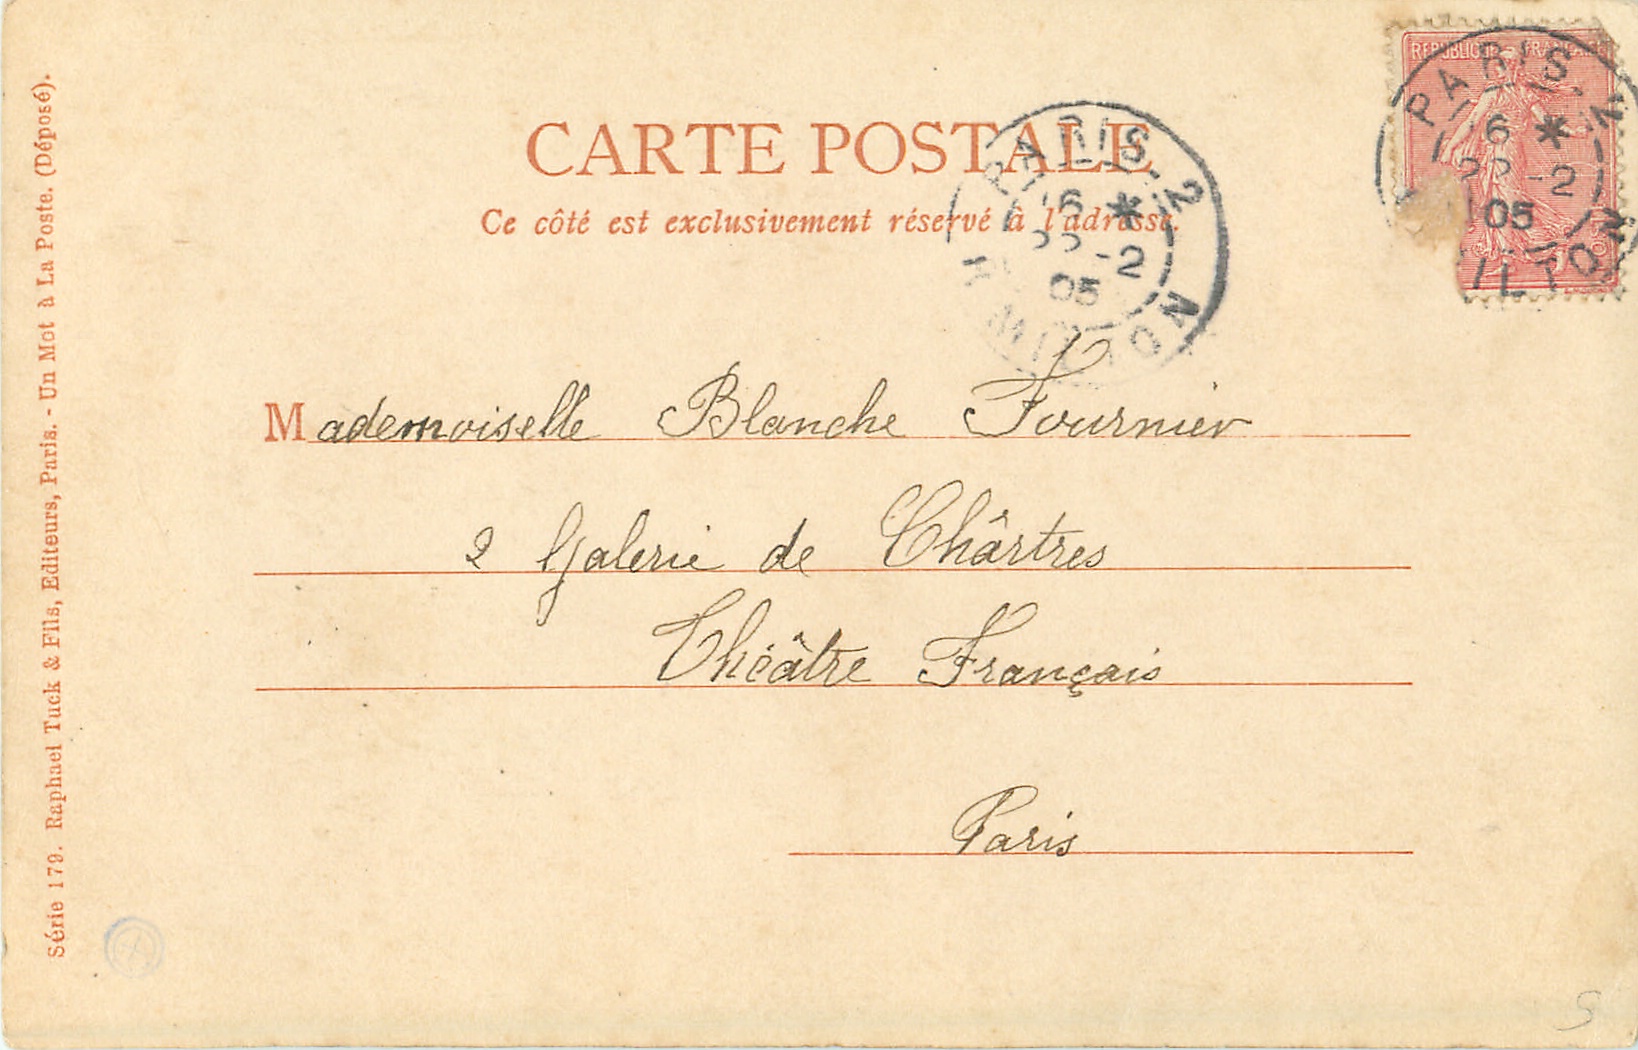 CARTE POSTALE
Ce côté est exclusivement réservé à l'adresse.
REPUBLIQUE FRANÇAISE
PARIS
6 *
22 -2
05
PARIS-2
6 *
22 -2
05
R. MILTON
Mademoiselle Blanche Fournier
2 Galerie de Chârtres
Théâtre Français
Paris
Série 179. Raphael Tuck & Fils, Editeurs, Paris. - Un Mot à La Poste. (Déposé).
A